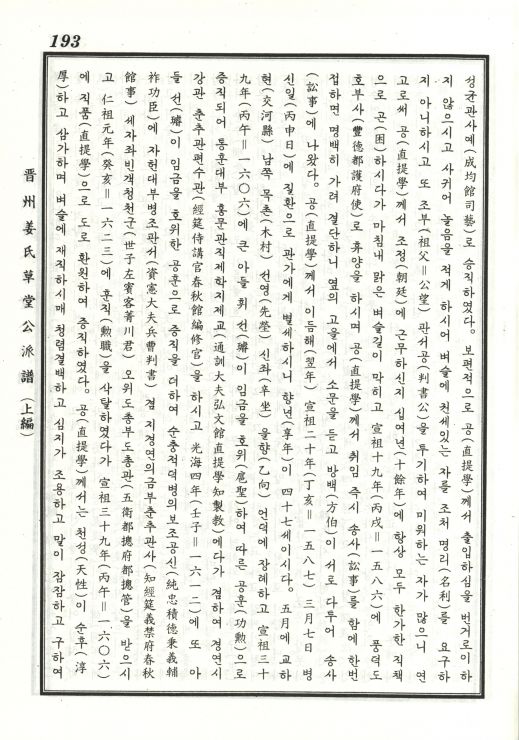 193
성균관사예(成均館司藝)로 승직하였다. 보편적으로 공(直提學)께서 출입하심을 번거로이 하
지 않으시고 사귀어 놓음을 적게 하시어 벼슬에 천세있는 자를 조처 명리(名利)를 요구하
지 아니하시고 또 조부(祖父=公望) 판서공(判書公)을 투기하여 미워하는 자가 많으니 연
고로써 공(直提學)께서 조정(朝廷)에 근무하신지 십여년(十餘年)에 항상 모두 한가한 직책
으로 곤(困)하시다가 마침내 맑은 벼슬길이 막히고 宣祖十九年(丙戌=一五八六)에 풍덕도
호부사(豐德都護府使)로 휴양을 하시며 공(直提學)께서 취임 즉시 송사(訟事)를 함에 한번
접하면 명백히 가려 결단하니 옆의 고을에서 소문을 듣고 방백(方伯)이 서로 다투어 송사
(訟事)에 나왔다. 공(直提學)께서 이듬해(翌年) 宣祖二十年(丁亥=一五八七) 三月七日 병
신일(丙申日)에 질환으로 관가에게 별세하시니 향년(享年)이 四十七세이시다. 五月에 교하
현(交河縣) 남쪽 목촌(木村) 선영(先塋) 신좌(辛坐) 을향(乙向) 언덕에 장례하고 宣祖三十
九年(丙午=一六○六)에 큰 아들 휘 선(璿)이 임금을 호위(扈聖)하여 따른 공훈(功勳)으로
증직되어 통훈대부 홍문관직제학지제교(通訓大夫弘文館直提學知製敎)에다가 겸하여 경연시
강관 춘추관편수관(經筵侍講官春秋館編修官)을 하시고 光海四年(壬子=一六一二)에 또 아
들 선(璿)이 임금을 호위한 공훈으로 증직을 더하여 순충적덕병의보조공신(純忠積德秉義輔
祚功臣)에 자헌대부병조판서(資憲大夫兵曹判書) 겸 지경연의금부춘추관사(知經筵義禁府春秋
館事) 세자좌빈객청천군(世子左賓客菁川君) 오위도총부도총관(五衛都摠府都摠管)을 받으시
고 仁祖元年(癸亥=一六二三)에 훈직(勳職)을 삭탈하였다가 宣祖三十九年(丙午=一六○六)
에 직품(直提學)으로 도로 환원하여 증직하였다. 공(直提學)께서는 천성(天性)이 순후(淳
厚)하고 삼가하며 벼슬에 재직하시매 청렴결백하고 심지가 조용하고 말이 잠잠하고 구하여
晋州姜氏草堂公派譜(上編)